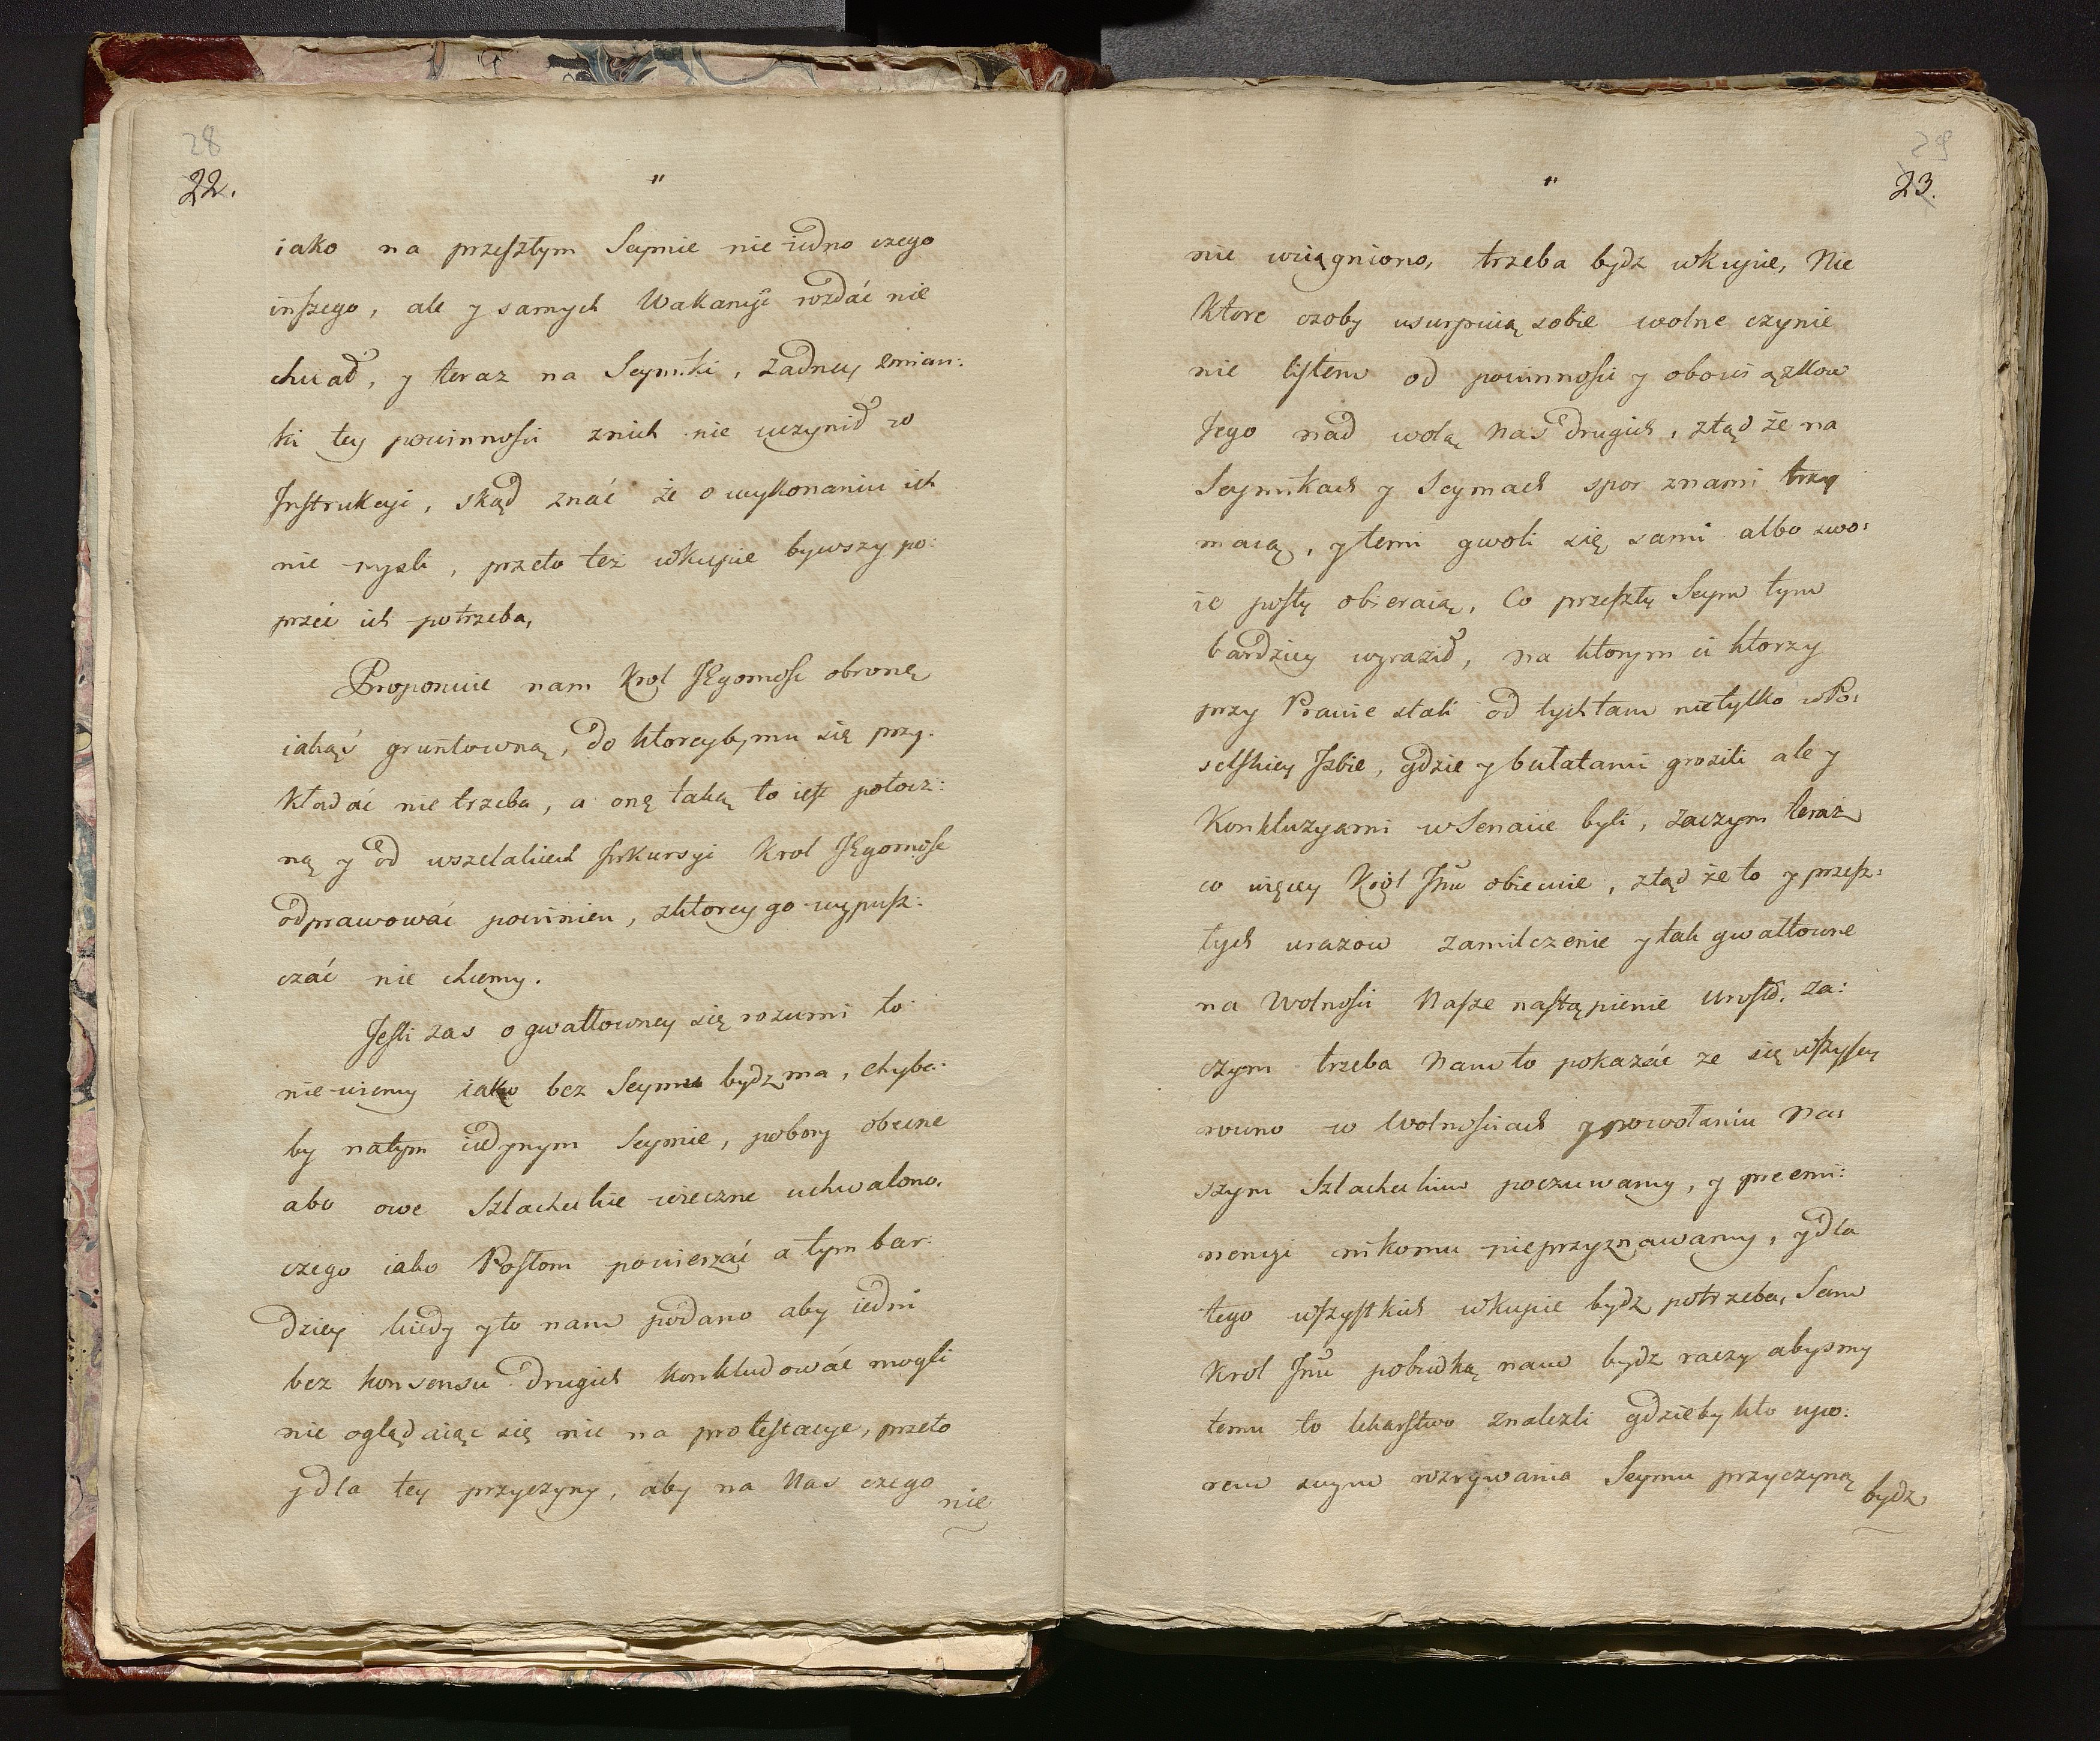 28
22.
"
iako na przeszłym Seymie nie iedno czego
inszego, ale y samych Wakancyi rozdać nie
chciał, y teraz na Seymiki, żadney zmian:
ki tey powinności znich nie uczynił w
Instrukcyi, skąd znać że o wykonaniu ich
nie mysli, przeto też wkupie bywszy po:
przeć ich potrzeba,
Proponuie nam Krol JEgomość obronę
iakąś gruntowną, do ktoreybymu się przy:
kładać nie trzeba, a onę taką to iest potocz:
ną y od wszelakich Inkursyi Krol JEgomość
odprawować powinien, zktorey go wypusz:
czać nie chcemy.
Jesli zas o gwałtowney się rozumi to
nie wiemy iako bez Seymu bydz ma, chyba:
by natym iedynym Seymie, pobory obecne
abo owe Szlacheckie wieczne uchwalono,
czego iako Posłom powierzać a tym bar:
dziey kiedy yto nam podano aby iedni
bez konsensu drugich konkludować mogli
nie oglądaiąc się nic na protestacye, przeto
ydla tey przyczyny, aby na Nas czego
nie
29
23.
"
nie wciągniono, trzeba bydz wkupie, Nie
Ktore osoby usurpuią sobie wolne czynie
nie listem od powinności y obowiązkow
Jego nad wolą Nas drugich, ztąd że na
Seymikach y Seymach spor znami trzy
maią, ytemi gwoli się sami albo swo:
ie posły obieraią, Co przeszły Seym tym
bardziey wyraził, na ktorym ci ktorzy
przy Prawie stali od tychtam nietylko wPo:
selskiey Izbie, gdzie y bułatami grozili ale y
Konkluzyami wSenacie byli, zaczym teraz
co więcey Krol Jmć obiecuie, ztąd że to y przesz:
łych urazow zamilczenie ytak gwałtowne
na Wolności Nasze nastąpienie urosło. Za:
czym trzeba Nam to pokazać ze się wszyscy
rowno w Wolnościach y powołaniu Na:
szym Szlacheckim poczuwamy, y preemi:
nencyi nikomu nieprzyznawamy, ydla
tego wszystkich wkupie bydz potrzeba, Sam
Krol Jmć pobudką nam bydz raczy abysmy
temu to lekarstwo znalezli gdzieby kto upo:
rem swym rozrywania Seymu przyczyną
bydz